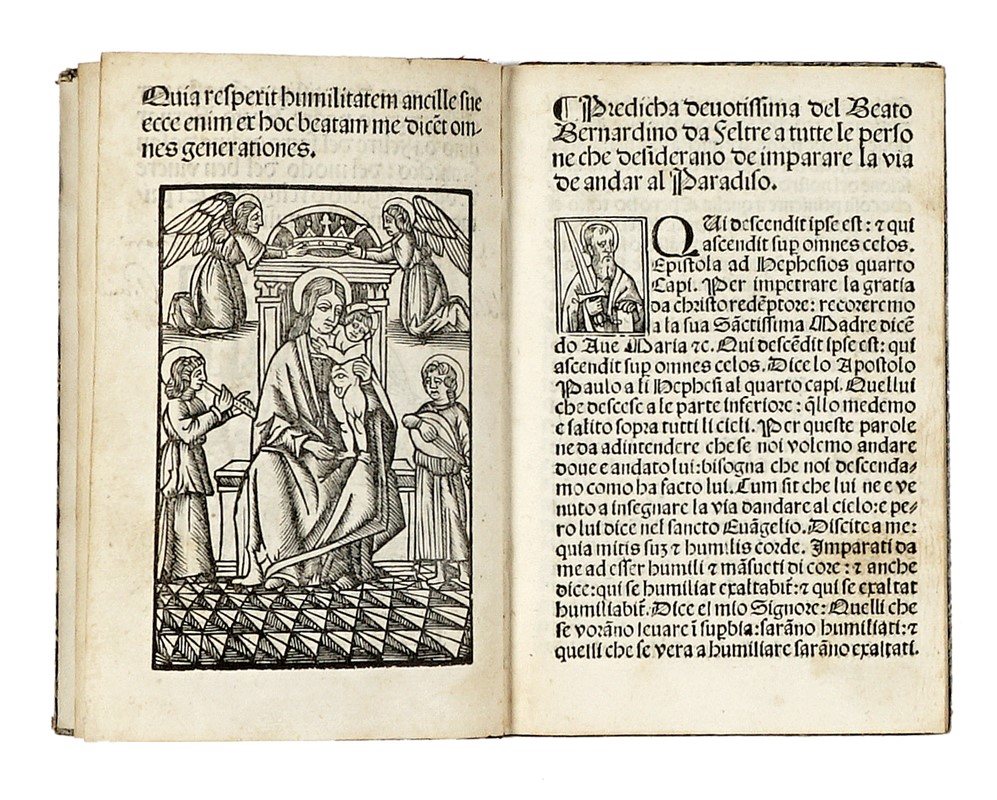 Quia respexit humilitatem ancille sue
ecce enim ex hoc beatam me dicēt om-
nes generationes.
¶ Predicha deuotissima del Beato
Bernardino da Feltre a tutte le perso
ne che desiderano de imparare la via
de andar al Paradiso.
QUi descendit ipse est: ⁊ qui
ascendit sup omnes celos.
Epistola ad Hephesios quarto
Capi. Per impetrare la gratia
da christo redēptore: recoreremo
a la sua Sāctissima Madre dicē
do Aue Maria ⁊c. Qui descēdit ipse est: qui
ascendit sup omnes celos. Dice lo Apostolo
Paulo a li Hephesi al quarto capi. Quellui
che descese a le parte inferiore: q̄llo medemo
e salito sopra tutti li cieli. Per queste parole
ne da adintendere che se noi volemo andare
doue e andato lui: bisogna che noi descenda-
mo como ha facto lui. Cum sit che lui ne e ve
nuto a insegnare la via dandare al cielo: e pe-
ro lui dice nel sancto Euāgelio. Discite a me:
quia mitis suꝫ ⁊ humilis corde. Imparati da
me ad esser humili ⁊ māsueti di core: ⁊ anche
dice: qui se humiliat exaltabit̄: ⁊ qui se exaltat
humiliabit̄. Dice el mio Signore: Quelli che
se vorāno leuare ī supbia: sarāno humiliati: ⁊
quelli che se vera a humiliare sarāno exaltati.